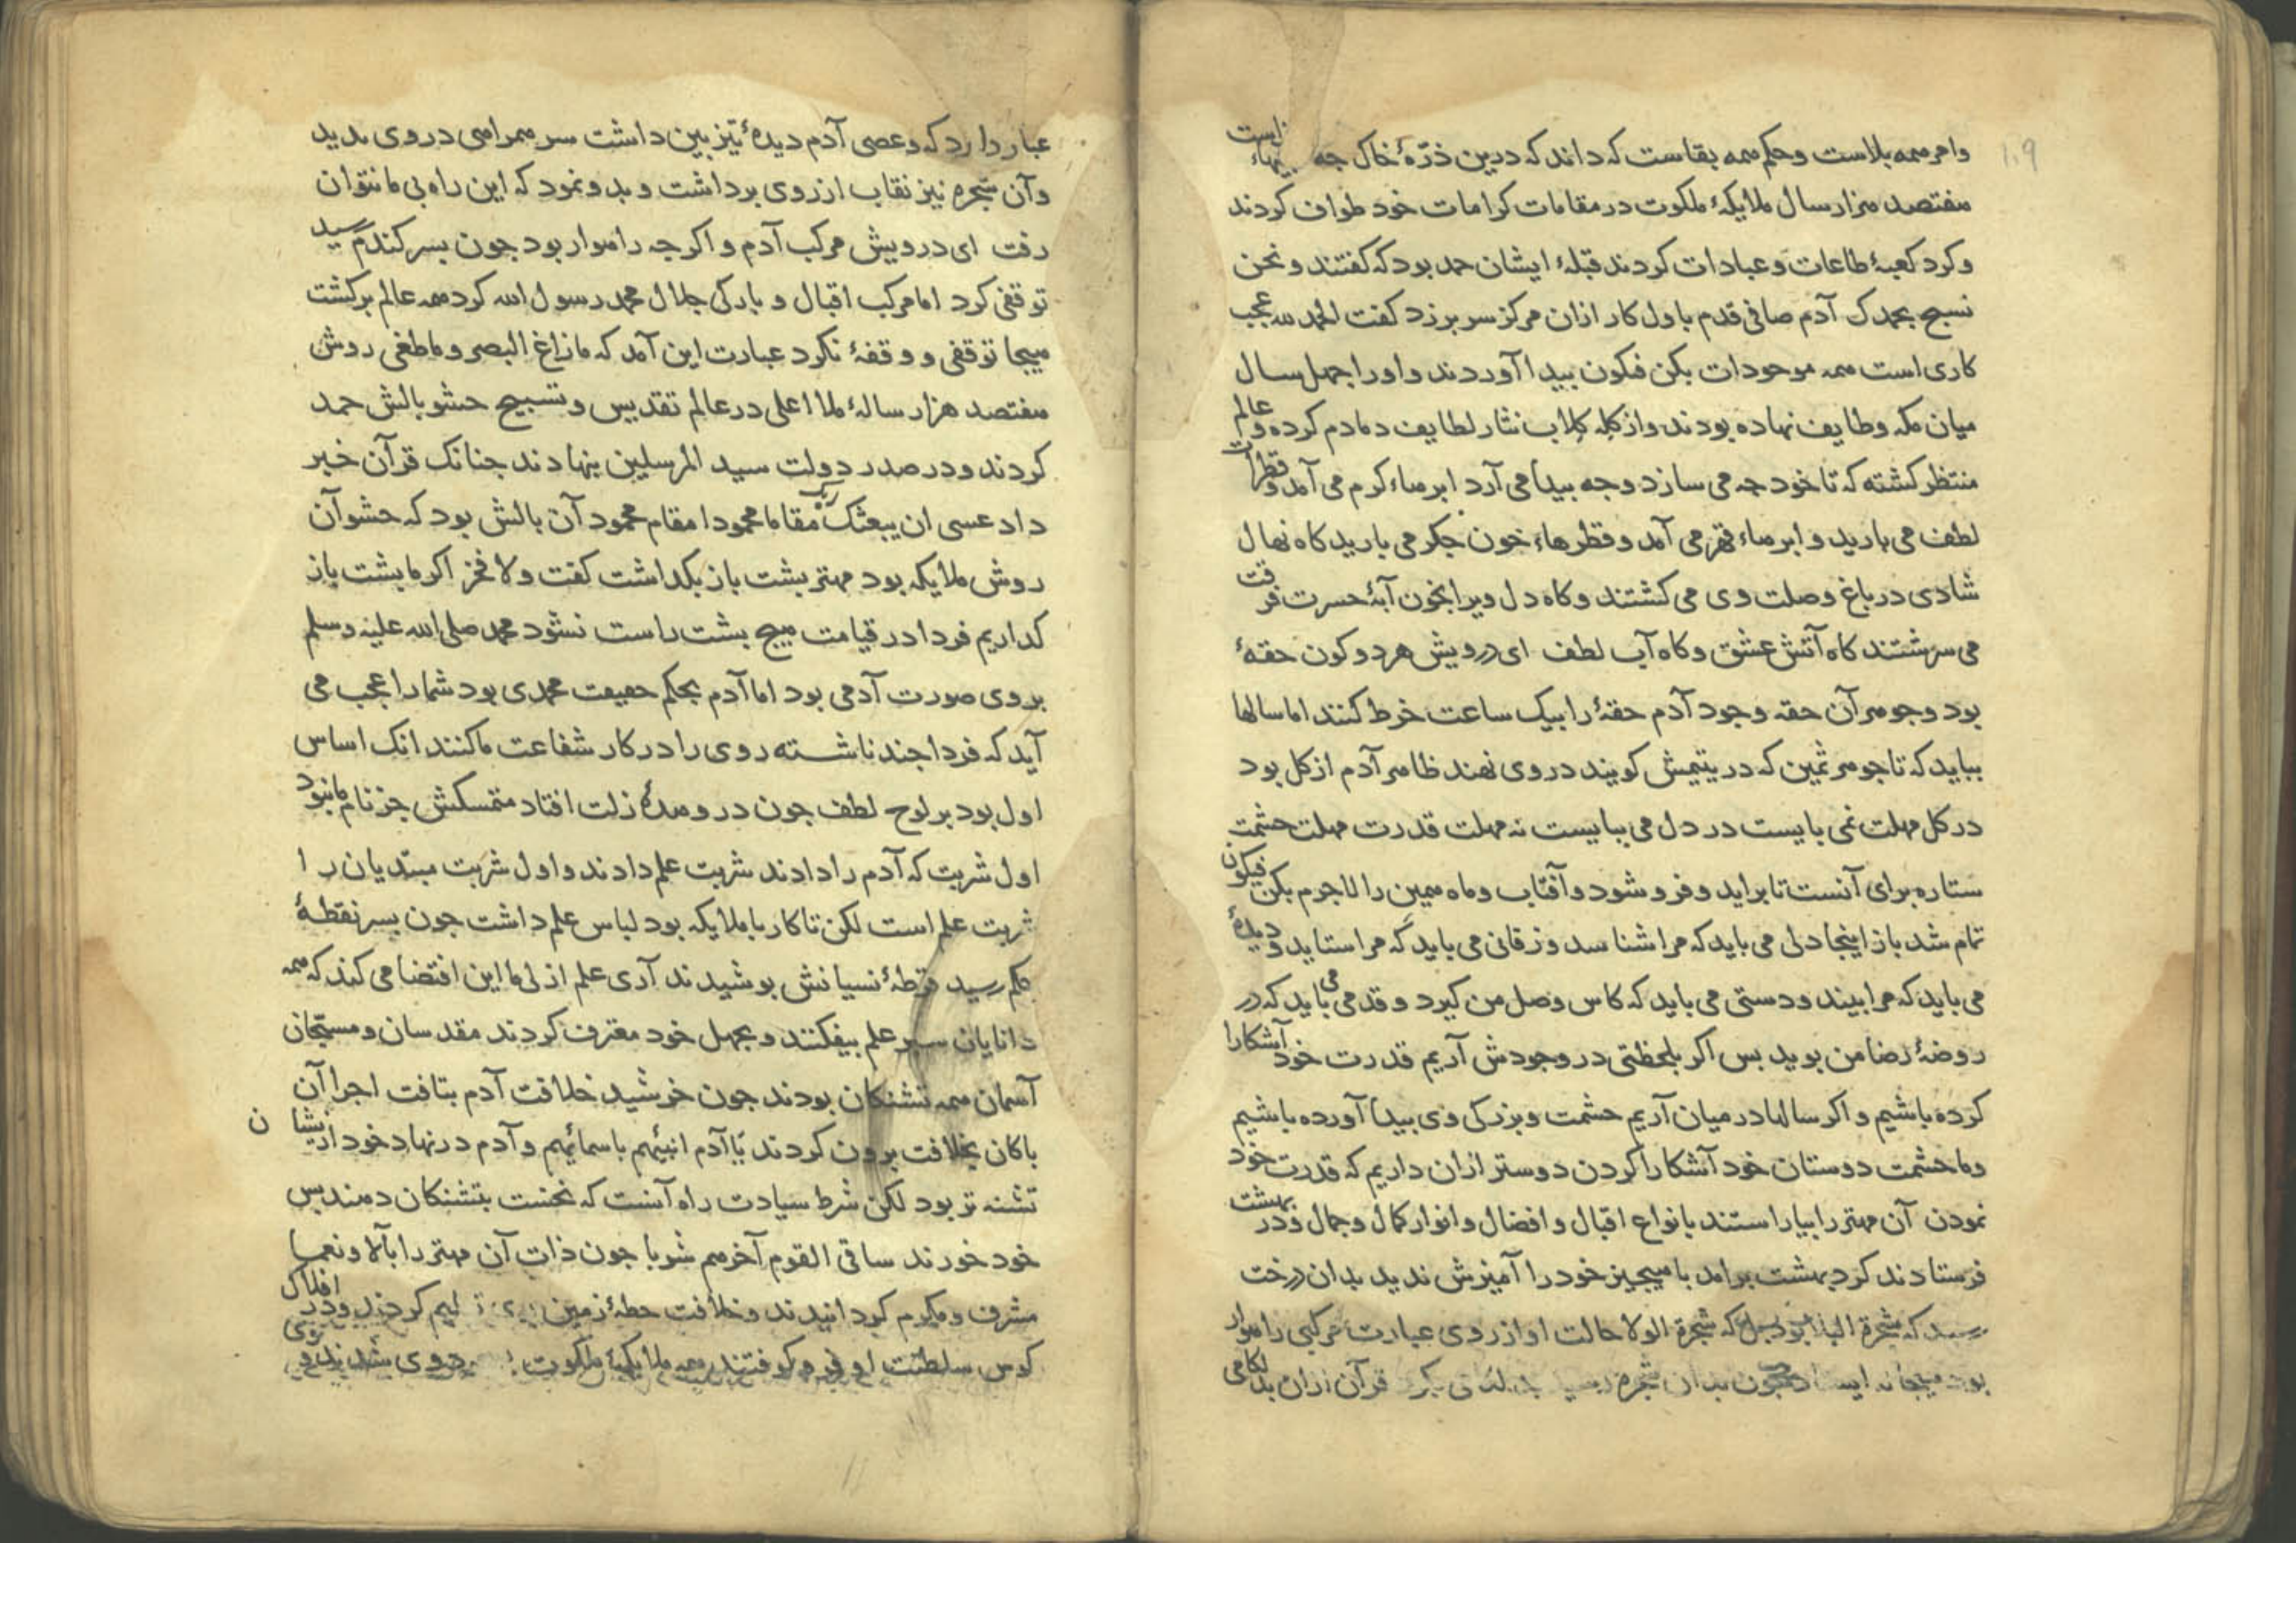 ۱۰۹
وامر همه بلاست وحکم همه بقاست که داند که درین ذرّهٔ خاک جه تنهاء راست
هفتصد هزار سال ملایکهٔ ملکوت در مقامات کرامات خود طواف کردند
وکرد کعبهٔ طاعات وعبادات کردند قبلهٔ ایشان حمد بود که کفتند و نحن
نسبح بحمدک آدم صافی قدم باول کار ازان مرکز سر برزد کفت الحمد لله عجب
کاری است همه موجودات بکن فکون بیدا آوردند واورا جهل سال
میان مکه وطایف نهاده بودند واز کله کلاب نثار لطایف دمادم کرده وعالم
منتظر کشته که تا خود جه می سازد وجه بیدا می آرد ابرهاء کرم می آمد وقطرات
لطف می بارید و ابرهاء قهر می آمد وقطرهاء خون جکر می بارید کاه نهال
شادی در باغ وصلت وی می کشتند وکاه دل ویرا بخون آبهٔ حسرت فرقت
می سرشتند کاه آتش عشق وکاه آب لطف ای درویش هر دو کون حقهٔ
بود وجوهر آن حقه وجود آدم حقهٔ را بیک ساعت خرط کنند اما سالها
بباید که تا جوهر ثمین که در یتیمش کویند در وی نهند ظاهر آدم از کل بود
در کل مهلت نمی بایست در دل می ببایست نه مهلت قدرت مهلت حشمت
ستاره برای آنست تا براید وفرو شود وآفتاب وماه همین را لاجرم بکن فیکون
تمام شد باز اینجا دلی می باید که مرا شناسد وزفانی می باید که مرا ستاید ودیدهٔ
می باید که مرا بیند ودستی می باید که کاس وصل من کیرد وقدمی می باید که در
روضهٔ رضا من بوید بس اکر بلحظتی در وجودش آریم قدرت خود آشکارا
کرده باشیم و اکر سالها در میان آریم حشمت وبزرکی وی بیدا آورده باشیم
وما حشمت دوستان خود آشکارا کردن دوستر ازان داریم که قدرت خود
نمودن آن مهتر را بیاراستند بانواع اقبال و افضال وانوار کمال وجمال ودر بهشت
فرستادند کرد بهشت برامد با هیچیز خود را آمیزش ندید بدان درخت
رسید که شجرة البلا بود بل که شجرة الولا حالت او از روی عبارت مرکبی راهوار
بود هیجا نه ایستاد جون بدان شجره رسید قرآن ازان بدکامی
عبار دارد که وعصی آدم دیدهٔ تیزبین داشت سر همراهی در وی بدید
وآن شجره نیز نقاب از روی برداشت و بدو نمود که این راه بی ما نتوان
رفت ای درویش مرکب آدم و اکرجه راهوار بود جون بسر کندم رسید
توقفی کرد اما مرکب اقبال و بارکی جلال محمد رسول الله کرد همه عالم برکشت
هیجا توقفی و وقفهٔ نکرد عبارت این آمد که ما زاغ البصر وما طغی روش
هفتصد هزار سالهٔ ملا اعلی در عالم تقدیس وتسبیح حشو بالش حمد
کردند ودر صدر دولت سید المرسلین بنهادند جنانک قرآن خبر
داد عسی ان یبعثک ربک مقاما محمودا مقام محمود آن بالش بود که حشو آن
روش ملایکه بود مهتر بشت باز بکداشت کفت ولا فخر اکر ما بشت باز
کداریم فردا در قیامت هیج بشت راست نشود محمد صلی الله علیه وسلم
بر وی صورت آدمی بود اما آدم بحکم حقیقت محمدی بود شما را عجب می
آید که فردا جند ناشسته روی را در کار شفاعت ما کنند انک اساس
اول بود بر لوح لطف جون در وهدهٔ زلت افتاد متمسکش جز نام ما نبود
اول شربت که آدم را دادند شربت علم دادند واول شربت مبتدیان را
شربت علم است لکن تا کار با ملایکه بود لباس علم داشت جون بسر نقطهٔ
حکم رسید قرطهٔ نسیانش بوشیدند آری علم ازلی ما این اقتضا می کند که همه
دانایان سبر علم بیفکنند وبجهل خود معترف کردند مقدسان ومسبحان
آسمان همه تشنکان بودند جون خرشید خلافت آدم بتافت اجرا آن
باکان بخلافت برون کردند یا آدم انبئهم باسمائهم وآدم در نهاد خود ازیشان
تشنه تر بود لکن شرط سیادت راه آنست که نخست بتشنکان دهند بس
خود خورند ساقی القوم آخرهم شربا جون ذات آن مهتر را بآلا ونعما
مشرف ومکرم کردانیدند وخلافت خطهٔ زمین تسلیم کردند ودر افلاک
کوس سلطنت او فرو کوفتند همه ملایکهٔ ملکوت وی شدند وروی